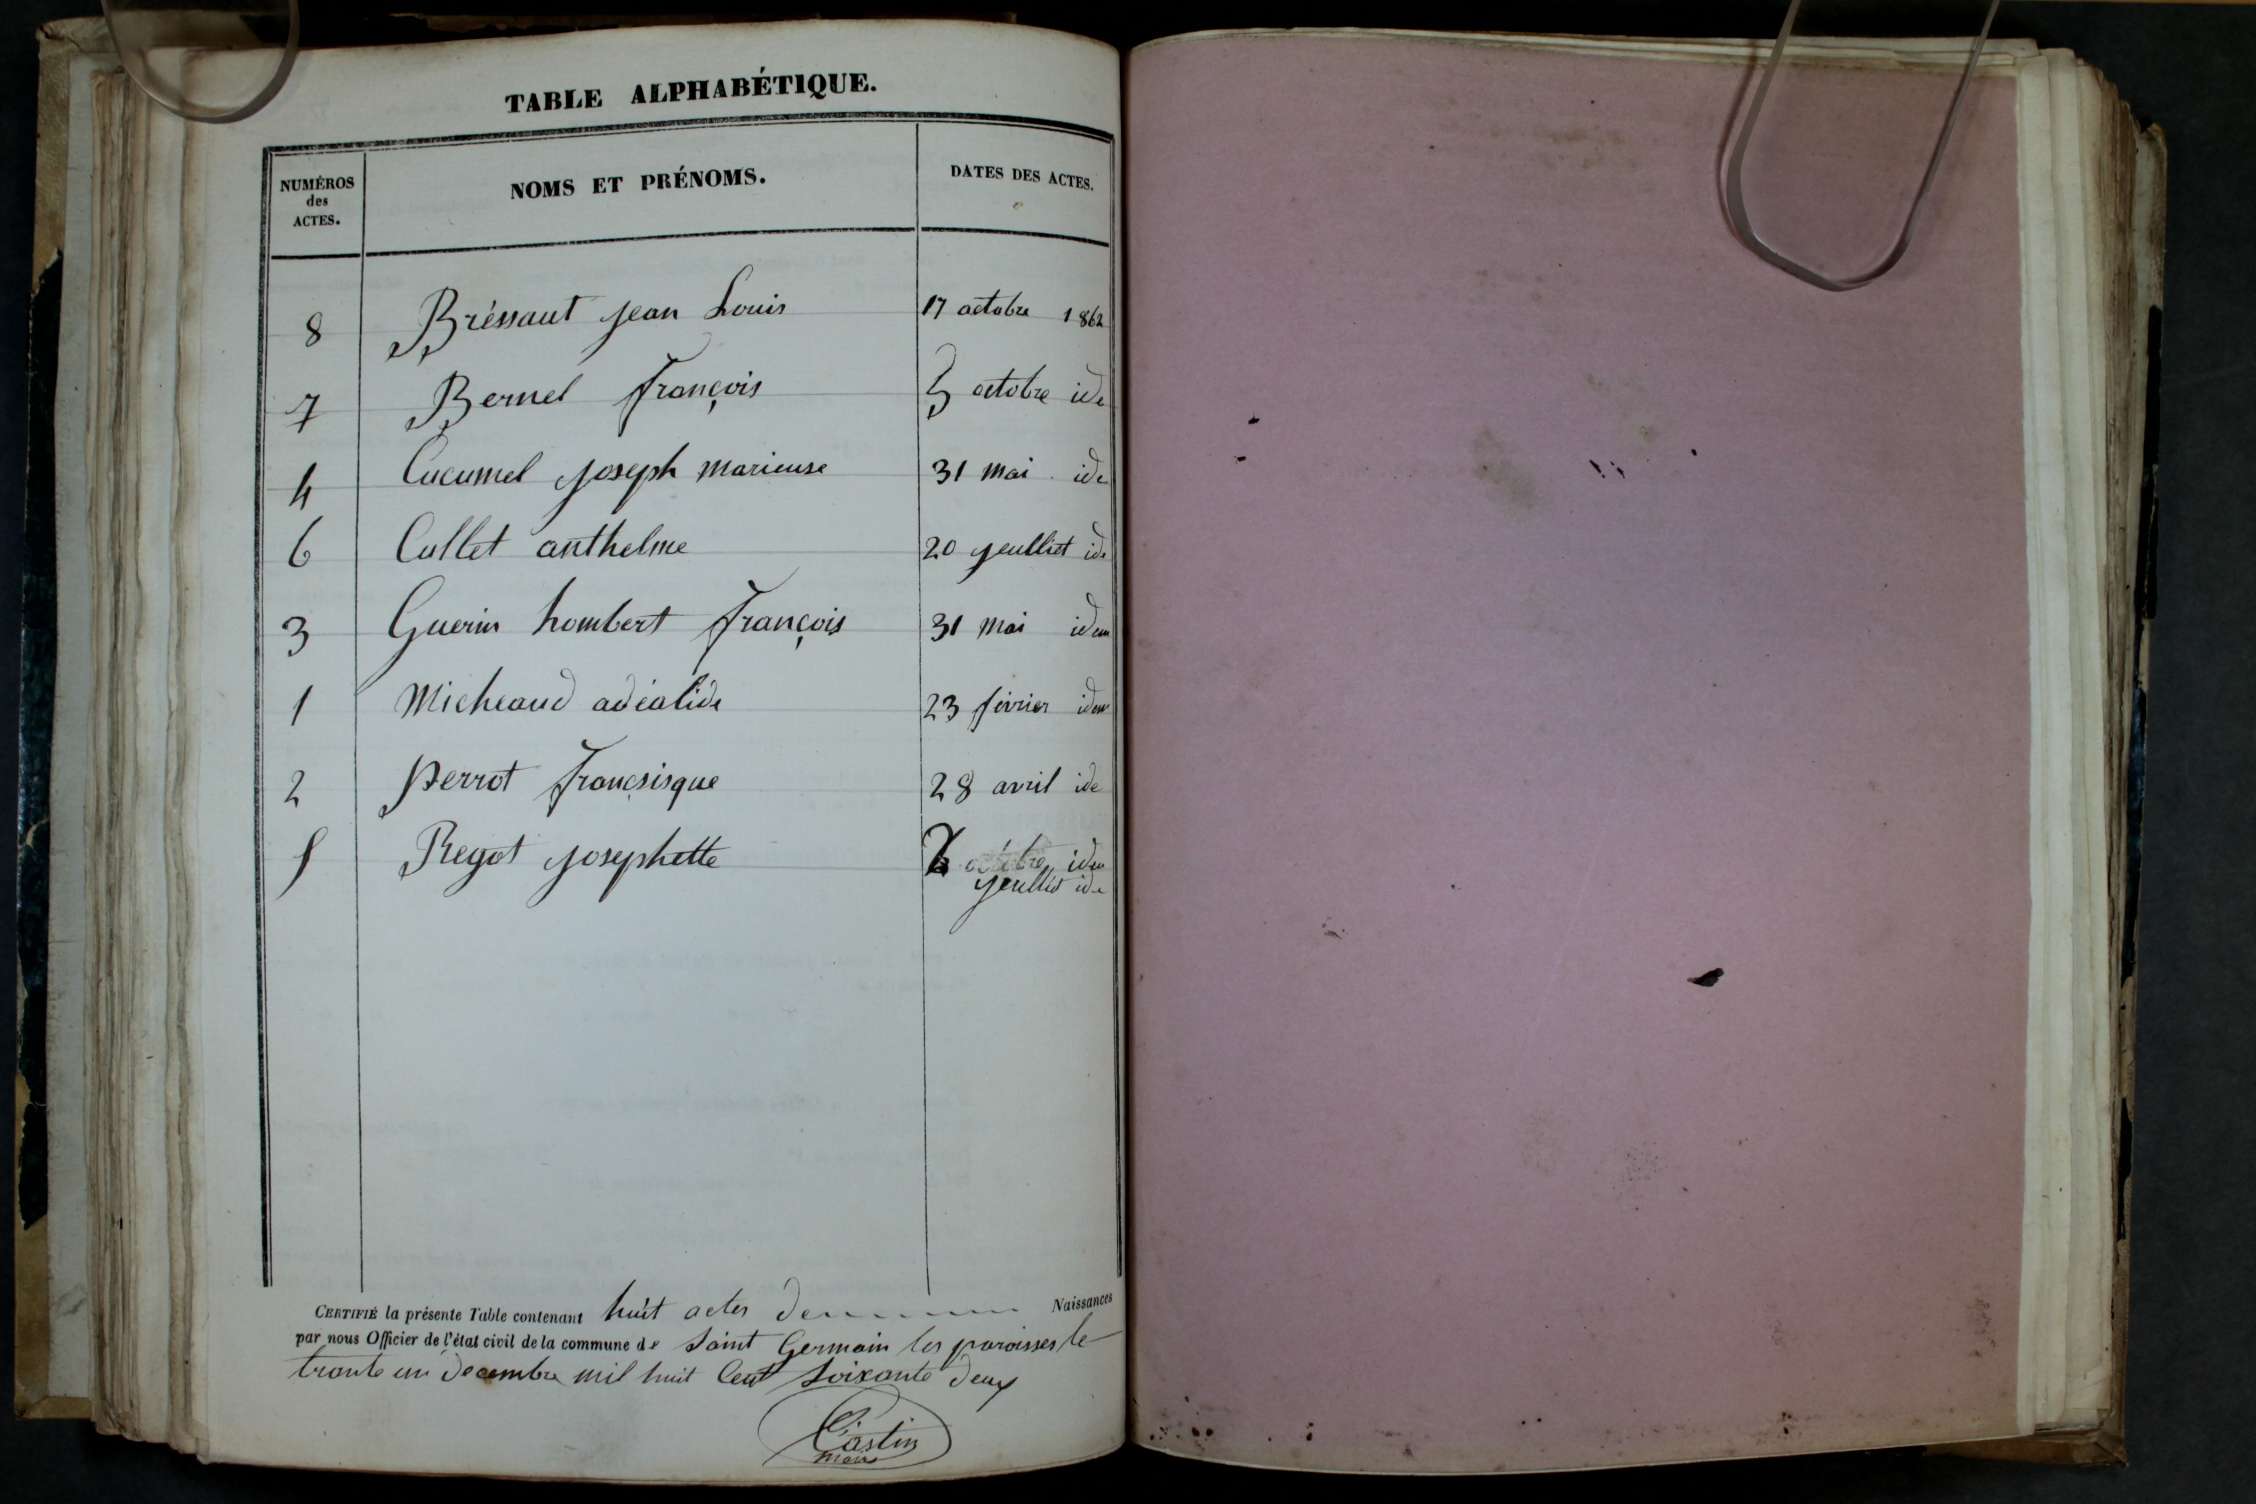 TABLE ALPHABÉTIQUE.
NUMÉROS des ACTES. NOMS ET PRÉNOMS. DATES DES ACTES.
8 Bréssaut jean Louis 17 octobre 1862
7 Bernel françois 5 octobre ide
4 Cucumel joseph marieuse 31 mai ide
6 Cullet anthelme 20 jeulliet ide
3 Guerin hombert françois 31 mai idem
1 Micheaud adéalide 23 février idem
2 perrot françsisque 28 avril ide
5 Regot josephette octobre idem
jeulliet ide
CERTIFIÉ la présente Table contenant huit actes de Naissances
par nous Officier de l'état civil de la commune de Saint Germain les paroisses le
trante un decembre mil huit Cent Soixante deux
Castin
maire